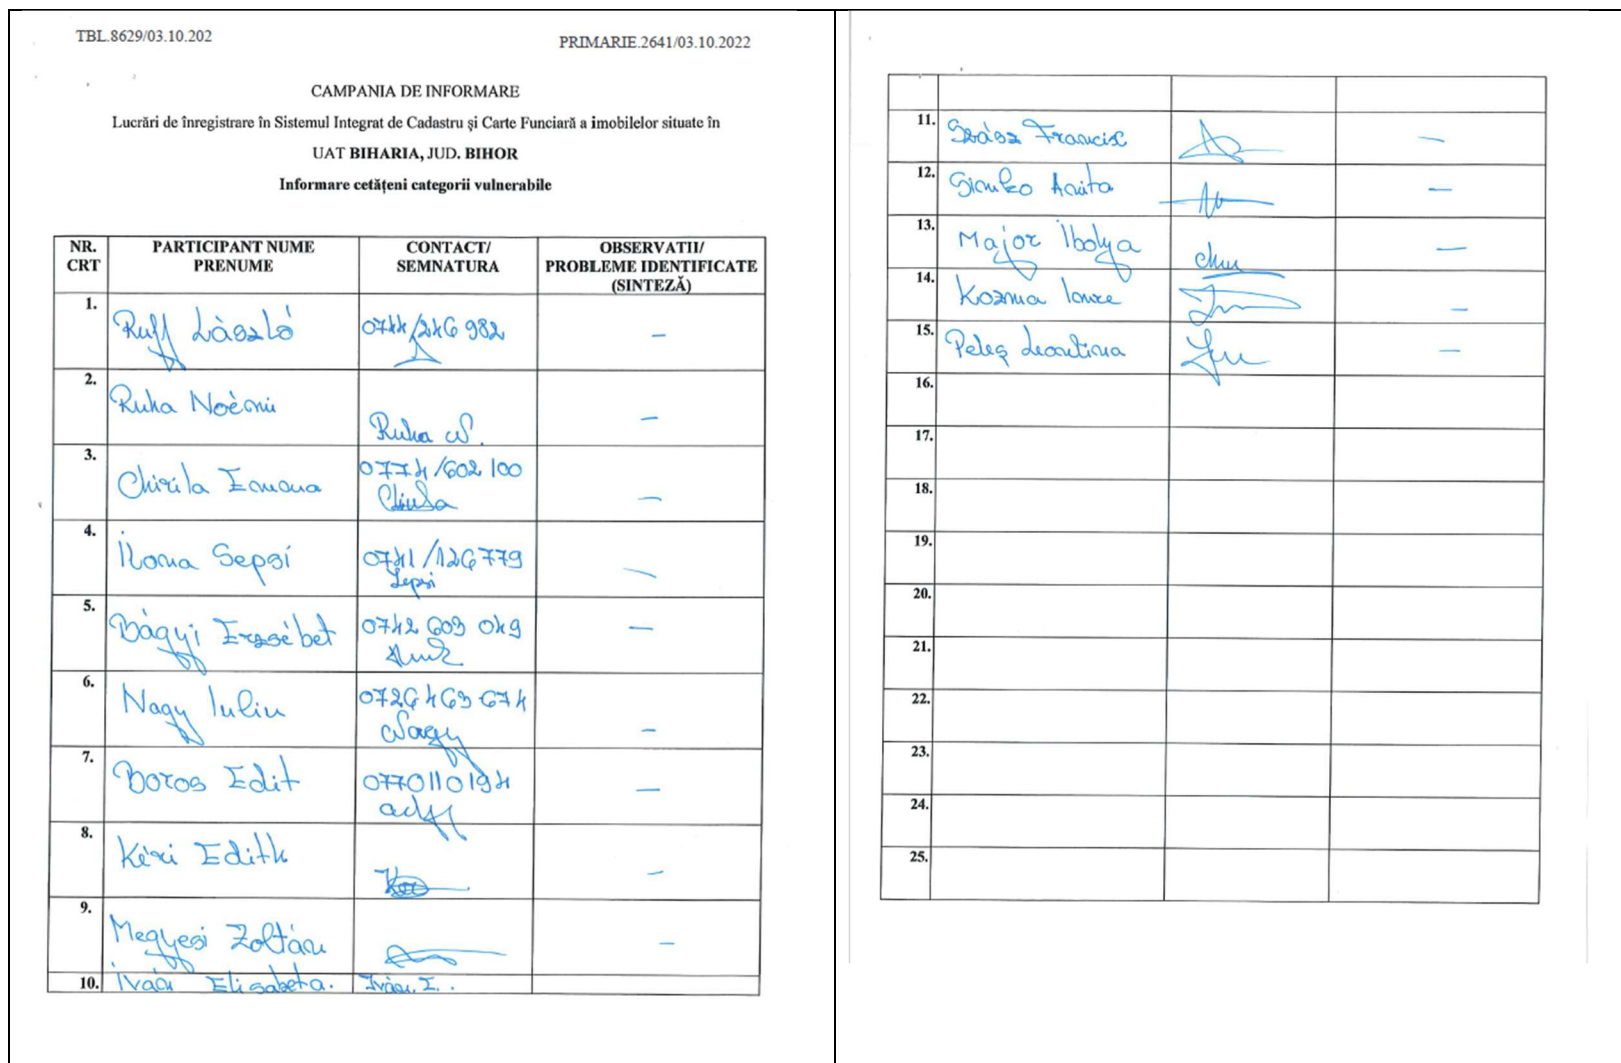 TBL.8629/03.10.202
PRIMARIE.2641/03.10.2022
CAMPANIA DE INFORMARE
Lucrări de înregistrare în Sistemul Integrat de Cadastru și Carte Funciară a imobilelor situate în
UAT BIHARIA, JUD. BIHOR
Informare cetățeni categorii vulnerabile
NR. CRT PARTICIPANT NUME PRENUME CONTACT/ SEMNATURA OBSERVATII/ PROBLEME IDENTIFICATE (SINTEZĂ)
1. Ruff László 0744/246 982 —
2. Ruha Noèmi Ruha N. —
3. Chirila Emona 0774/602 100 —
4. Ilona Sepsi 0741/126779 Sepsi —
5. Bágyi Erzsébet 0742 603 049 —
6. Nagy Iuliu 0726 463 674 Nagy —
7. Boros Edit 0770110194 —
8. Kèri Edith —
9. Megyesi Zoltán —
10. Iván Elisabeta. Iván. E.
11. Szász Francisc —
12. Gianko Anita —
13. Major Ibolya —
14. Kozma Ioure —
15. Peleș Leontina —
16.
17.
18.
19.
20.
21.
22.
23.
24.
25.